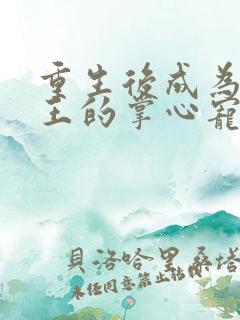 重生後成為
王的掌心寵
貝洛哈里桑塔
未經同意禁止轉